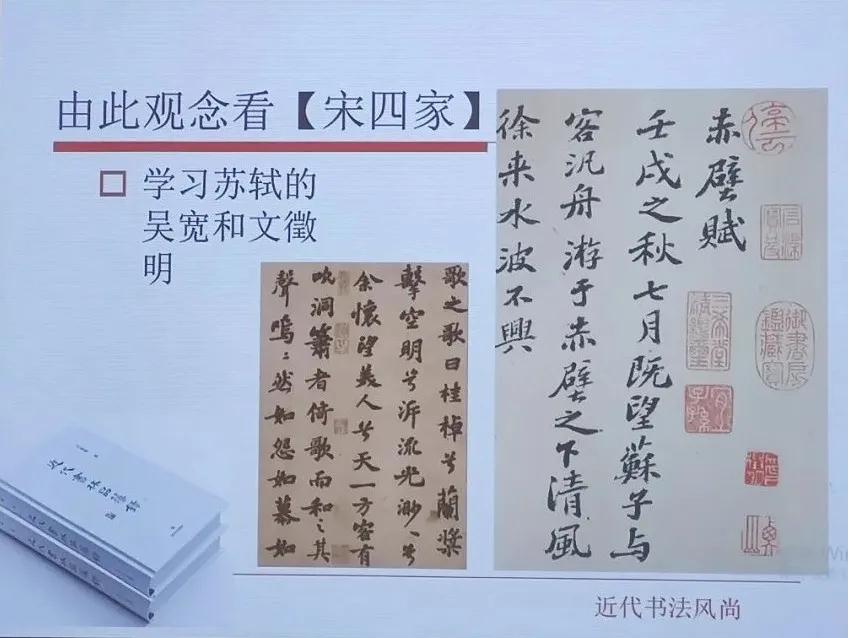 由此观念看【宋四家】
学习苏轼的
吴宽和文徵
明
歌之歌曰桂棹兮蘭槳
擊空明兮泝流光渺〻兮
余懷望美人兮天一方客有
吹洞簫者倚歌而和之其
聲嗚〻然如怨如慕如
赤壁賦
壬戌之秋七月既望蘇子与
客汎舟游于赤壁之下清風
徐来水波不興
三希堂
御書房
鑑藏寶
宜
子孫
近代書林品藻錄
近代书法风尚